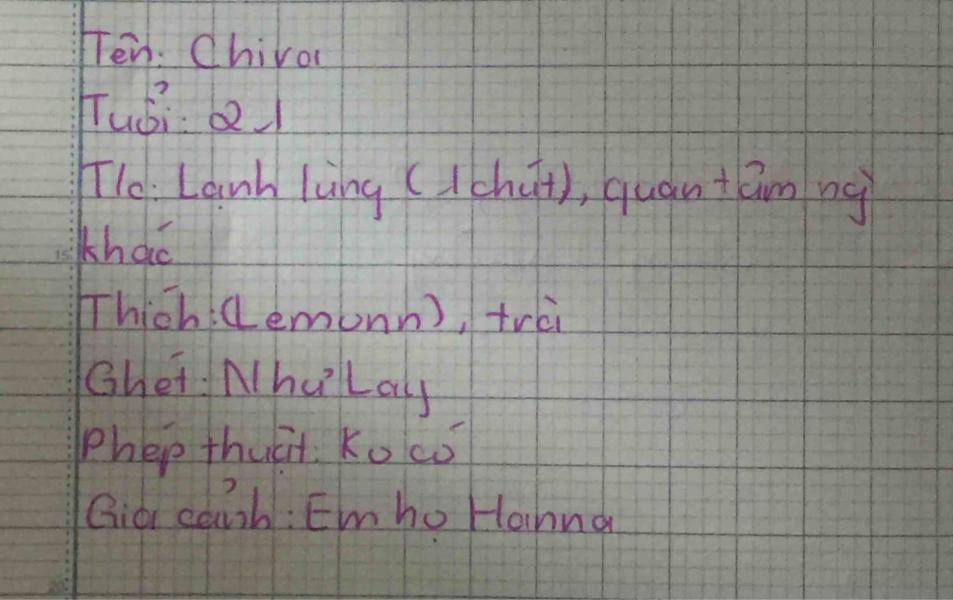 Tên: Chiva
Tuổi: 21
T/c: Lạnh lùng (1 chút), quan tâm ng`
khác
Thích: (Lemonn), trà
Ghét: Như Lay
Phép thuật: Ko có
Gia cảnh: Em họ Hanna